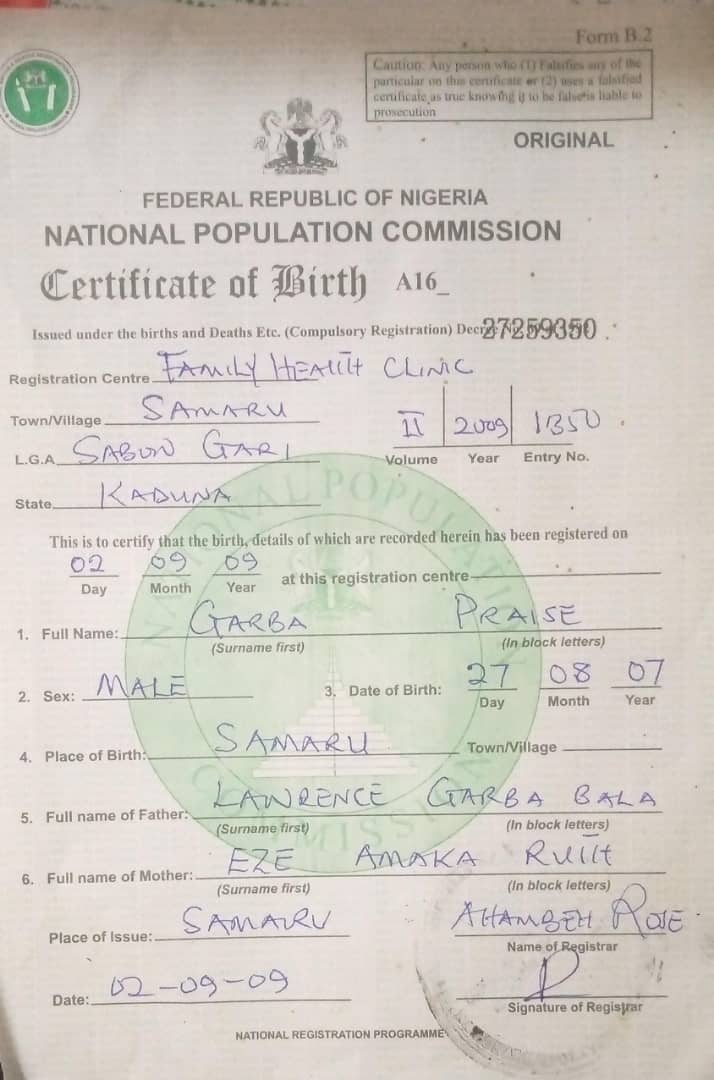 Form B.2
Caution: Any person who (1) Falsifies any of the
particular on this certificate or (2) uses a falsified
certificate as true knowing it to be false is liable to
prosecution
ORIGINAL
FEDERAL REPUBLIC OF NIGERIA
NATIONAL POPULATION COMMISSION
Certificate of Birth A16_
Issued under the births and Deaths Etc. (Compulsory Registration) Decree 27259350
Registration Centre FAMILY HEALTH CLINIC
Town/Village SAMARU
II 2009 1350
Volume Year Entry No.
L.G.A. SABON GARI
State KADUNA
NATIONAL POPULATION COMMISSION
This is to certify that the birth, details of which are recorded herein has been registered on
02 09 09 at this registration centre
Day Month Year
1. Full Name: GARBA PRAISE
(Surname first) (In block letters)
2. Sex: MALE 3. Date of Birth: 27 08 07
Day Month Year
4. Place of Birth: SAMARU Town/Village
5. Full name of Father: LAWRENCE GARBA BALA
(Surname first) (In block letters)
6. Full name of Mother: EZE AMAKA RUTH
(Surname first) (In block letters)
Place of Issue: SAMARU AHAMBEH ROSE
Name of Registrar
Date: 02-09-09
Signature of Registrar
NATIONAL REGISTRATION PROGRAMME